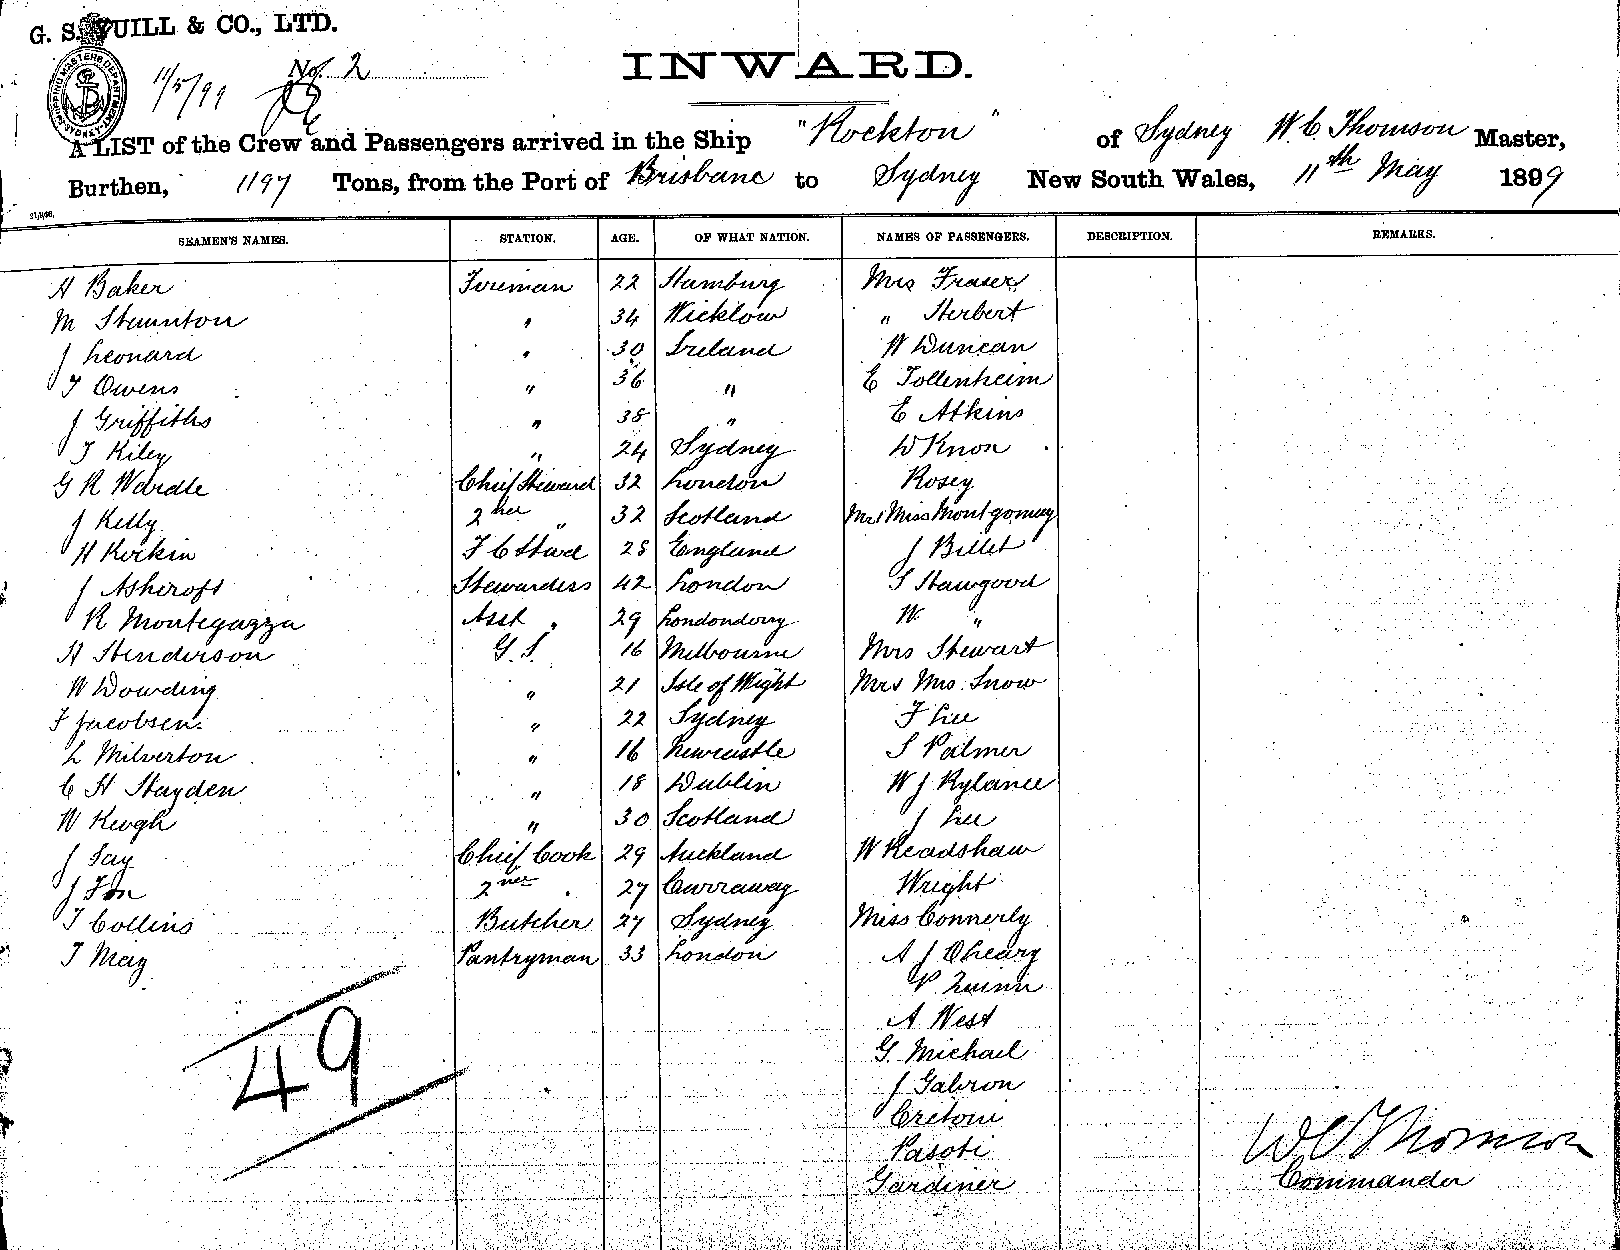 G. S. YUILL & CO., LTD.
11/5/99 No. 2
INWARD.
A LIST of the Crew and Passengers arrived in the Ship "Rockton" of Sydney W. C Thomson Master,
Burthen, 1197 Tons, from the Port of Brisbane to Sydney New South Wales, 11th May 1899
SEAMEN'S NAMES. STATION. AGE. OF WHAT NATION. NAMES OF PASSENGERS. DESCRIPTION. REMARKS.
H Baker Fireman 22 Hamburg Mrs Fraser
M Staunton " 34 Wicklow " Herbert
J Leonard " 30 Ireland W Duncan
T Owens " 36 " E Tollenheim
J Griffiths " 38 " E Atkins
T Kiley " 24 Sydney W Knon
G R Wardle Chief Steward 32 London Rosey
J Kelly 2ner " 32 Scotland Mr & Miss Montgomery
H Korkin F C Stwd 28 England J Billet
J Ashcroft Stewardess 42 London S Hawgood
R Montegazza Asst " 29 Londonderry W "
H Henderson G. S. 16 Melbourne Mrs Stewart
W Dowding " 21 Isle of Wight Mr & Mrs Snow
F Jacobsen " 22 Sydney F Lee
L Milverton " 16 Newcastle S Palmer
C H Hayden " 18 Dublin W J Rylance
W Keogh " 30 Scotland J Lee
J Jay Chief Cook 29 Auckland W Readshaw
J Fon 2ner " 27 Curraway Wright
T Collins Butcher 27 Sydney Miss Connerly
T May Pantryman 33 London A J Oheary
P. Quinn
A West
G. Michael
J Gabron
Cretoni
Pasoti
Gardiner
49
W C Thomson
Commander